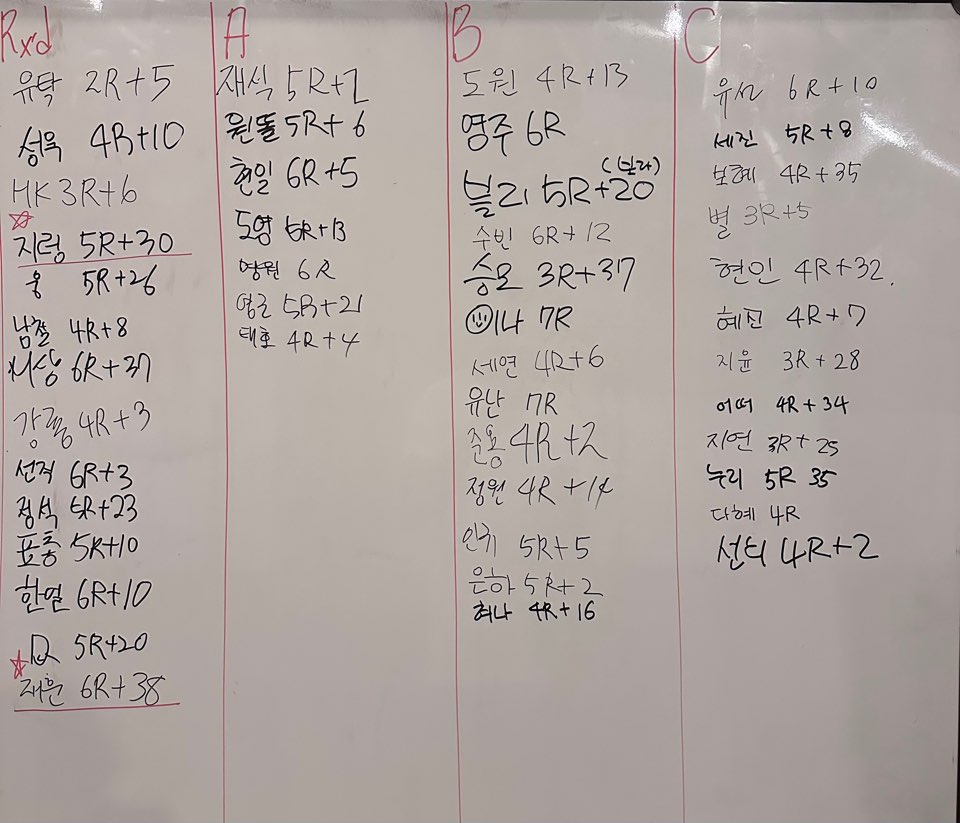 Rx'd
유탁 2R+5
성욱 4R+10
HK 3R+6
지렁 5R+30
웅 5R+26
남철 4R+8
6R+37
강 4R+3
선적 6R+3
정석 5R+23
표종 5R+10
한열 6R+10
5R+20
재훈 6R+38
A
재식 5R+7
원똘 5R+6
현일 6R+5
도영 5R+13
6R
영근 5R+21
태호 4R+4
B
도원 4R+13
영주 6R
(빌라)
블리 5R+20
수빈 6R+12
승모 3R+37
이나 7R
세연 4R+6
유난 7R
준용 4R+2
정원 4R+14
5R+5
은하 5R+2
허나 4R+16
C
유선 6R+10
세진 5R+8
보혜 4R+35
별 3R+5
현인 4R+32.
혜진 4R+7
지윤 3R+28
어떠 4R+34
지연 3R+25
누리 5R 35
다혜 4R
선티 4R+2